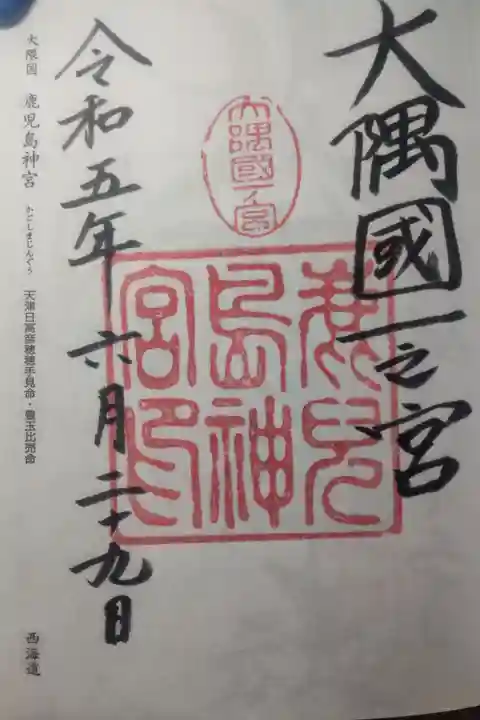 大隅國一之宮
大隅國一ノ宮
鹿兒島神宮印
令和五年 六月二十九日
大隈国 鹿児島神宮 かごしまじんぐう 天津日高彦穂穂手見命・豊玉比売命
西海道